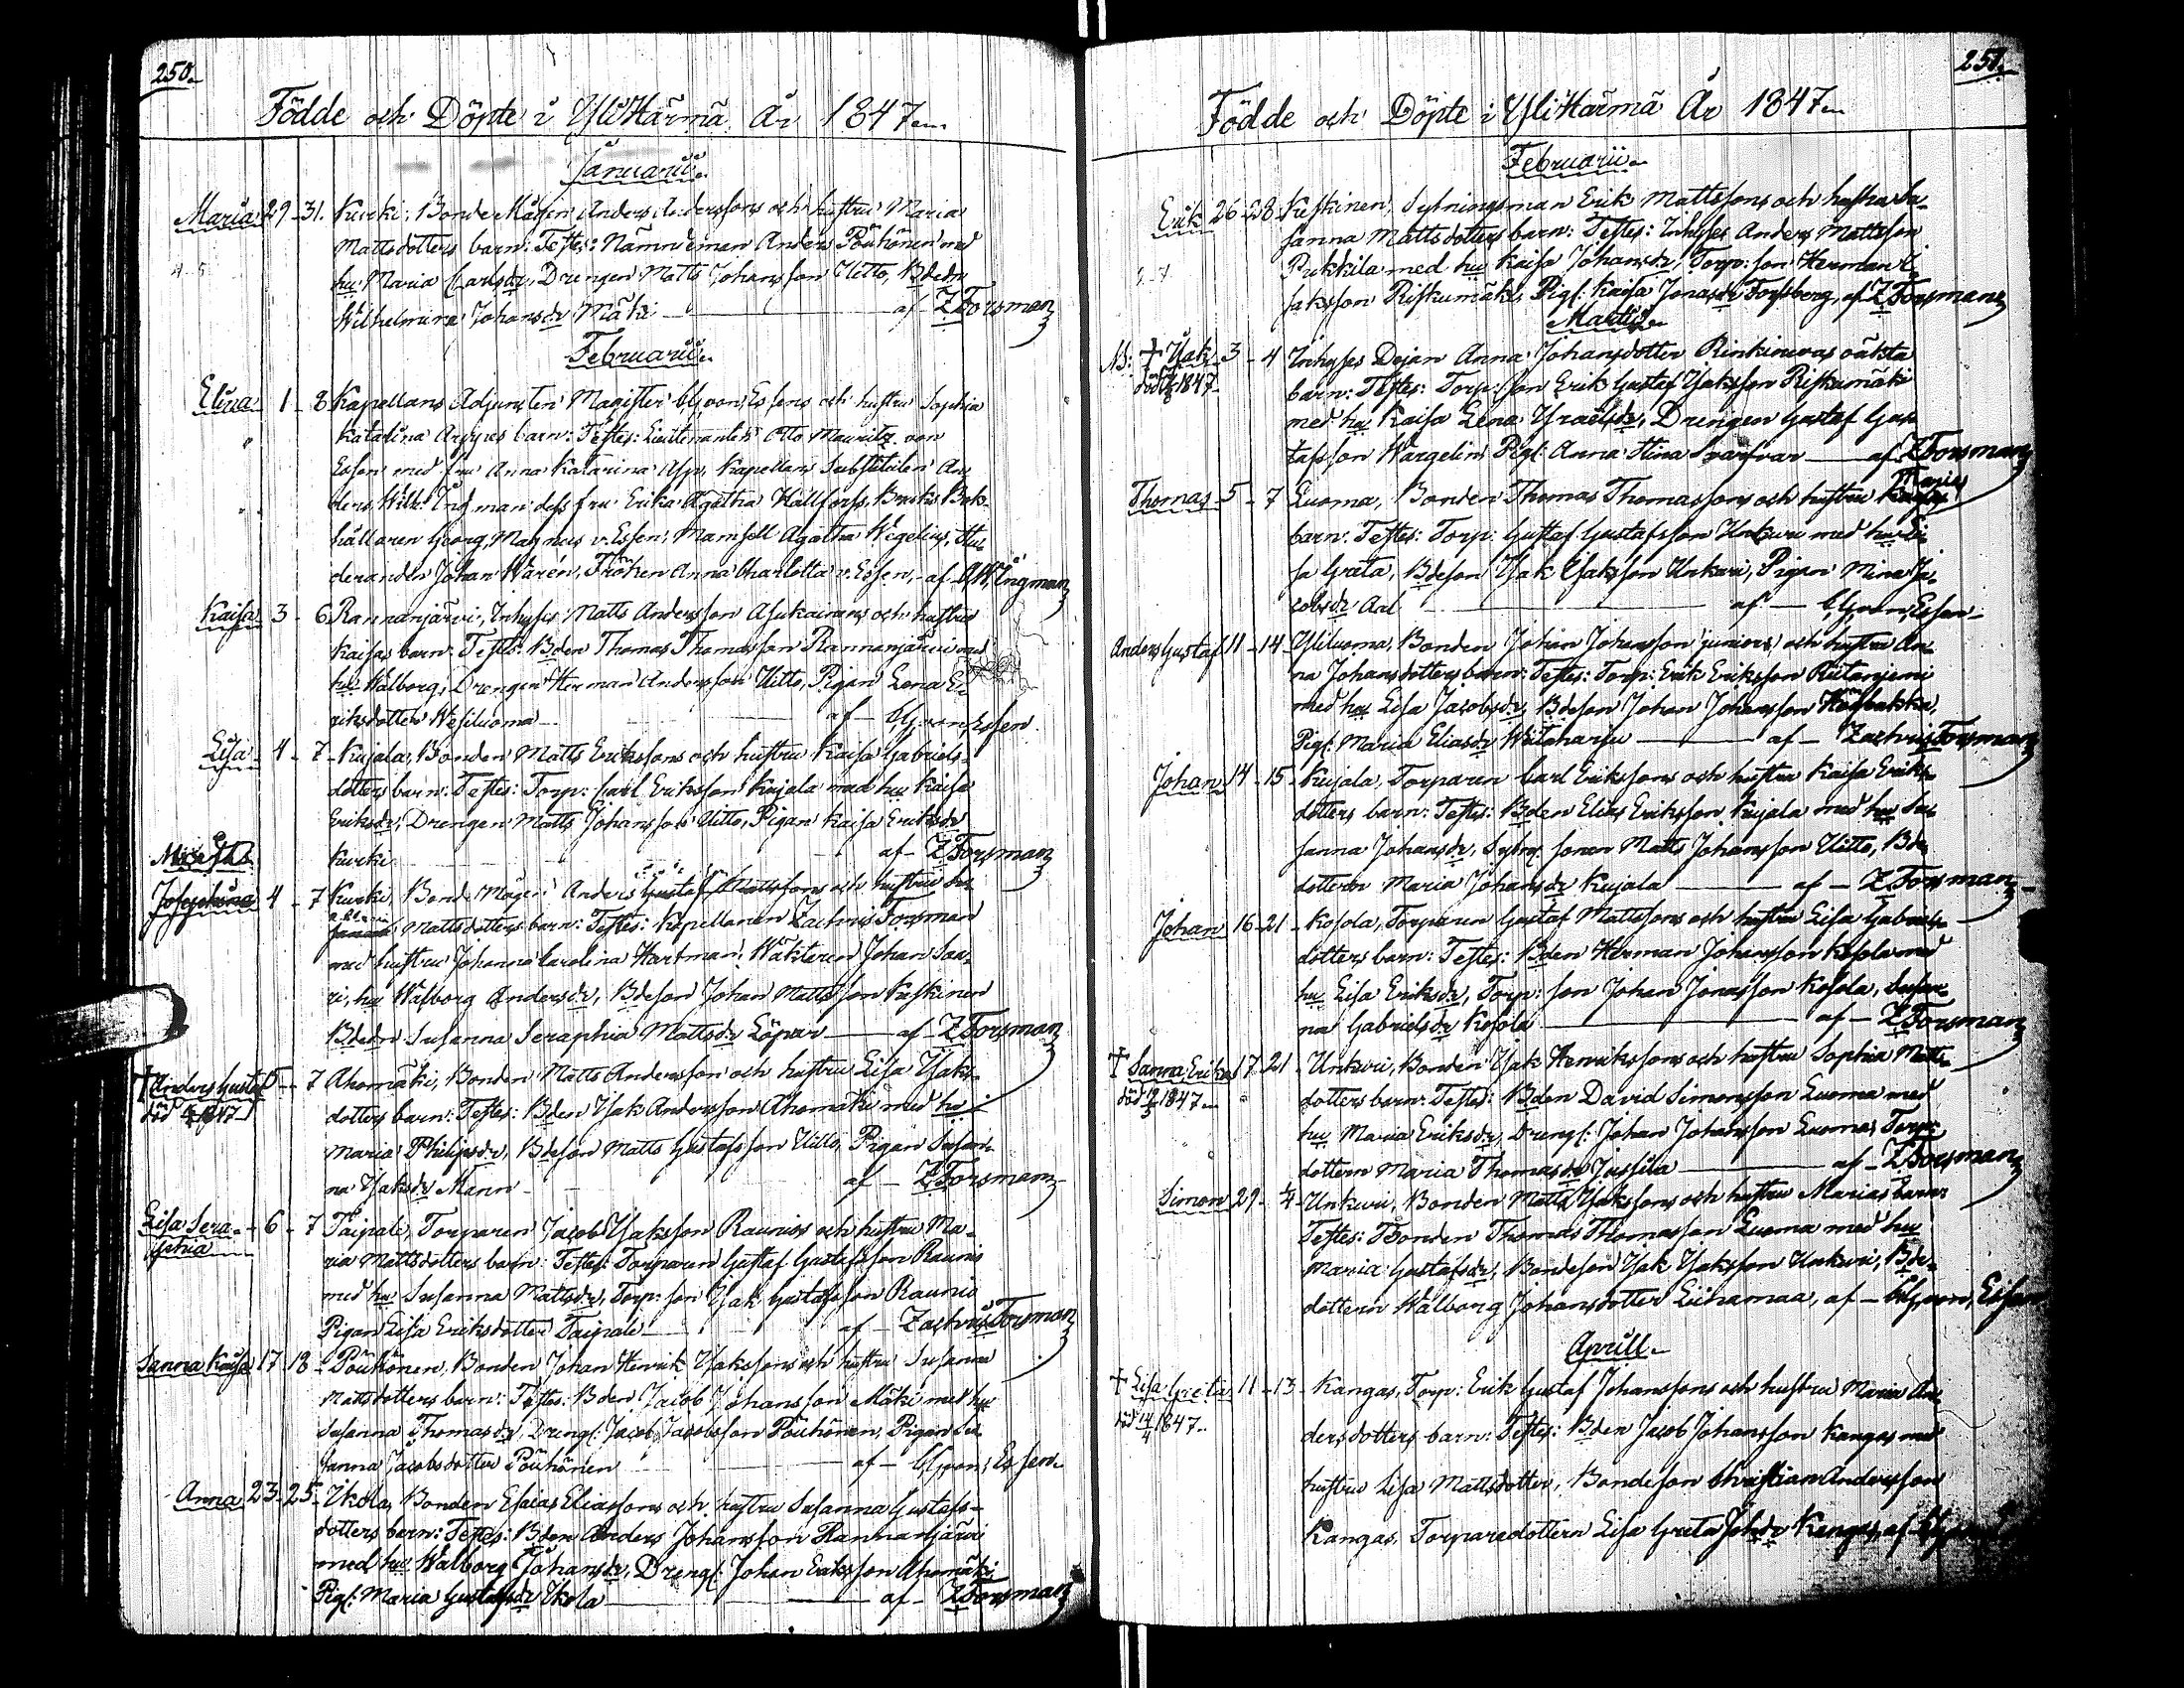 250.
Födde och Döpte i YliHärmä År 1847.
Januarii.
Maria 29 - 31. Kurki, Bonde Mågen Anders Anderssons och hustru Maria
Mattsdotters barn: Testes: Nämndeman Anders Pöuhönen med
hu Maria Carlsdr, Drengen Matts Johansson Uitto, Bdedn
Wilhelmina Johansdr Mäki — af Z Forsman
Februarii.
Elina 1 - 8 Kapellans Adjuncten Magister C.G. von Essens och hustru Sophia
Katarina Arppes barn: Testes: Lieutenanten Otto Mauritz von
Essen med fru Anna Katarina Asp, Kapellans Substituten An-
ders Wilh: Ingman dess fru Erika Agatha Hallfors, Bruks Bok-
hållaren Georg Magnus v. Essen, Mamsell Agatha Wegelius, Stu-
deranden Johan Warén, Fröken Anna Charlotta v. Essen, af AW, Ingman
Kaisa 3 - 6 Rannanjärvi, Inhyses Matts Andersson Asukairens och hustru
Kaisas barn: Testes: Bden Thomas Thomasson Rannanjärvi med
hu Walborg, Drengen Herman Andersson Uitto, Pigan Lena E-
riksdotter Wesiluoma — af — CG von Essen.
Lisa 4 - 7 - Kujala, Bonden Matts Erikssons och hustru Kaisa Gabriels-
dotters barn: Testes: Torp: Carl Eriksson Kujala med hu Kaisa
Eriksdr, Drengen Matts Johansson Uitto, Pigan Kaisa Eriksdr
Kurki — af Z Forsman
Josephina 4 - 7 Kurki, Bonde Mågen Anders Gustaf Mattssons och hustru
Mattsdotters barn: Testes: Kapellanen Zachris Forsman
med hustru Johanna Carolina Hartman, Wäktaren Johan Saa-
ri, hu Walborg Andersdr, Bdeson Johan Mattsson Keskinen
Bdedn Susanna Seraphia Mattsdr Löpar — af Z Forsman
† Anders Gustaf 5 - 7 Ahomäki, Bonden Matts Andersson och hustru Lisa Isaks-
död 1847
dotters barn: Testes: Bden Isak Andersson Ahomäki med hu
Maria Philipsdr, Bdeson Matts Gustafsson Uitto, Pigan Susan-
na Isaksdr Mann — af — Z Forsman
Lisa Sera- 6 - 7 Taipale, Torparen Jacob Isaksson Raunios och hustru Ma-
phia
ria Mattsdotters barn: Testes: Torparen Gustaf Gustafsson Raunio
med hu Susanna Mattsdr, Torp: son Isak Gustafsson Raunio
Pigan Lisa Eriksdotter Taipale — af — Zachris Forsman
Sanna Kaisa 17 - 18 - Pöuhönen, Bonden Johan Henrik Isakssons och hustru Susanna
Mattsdotters barn: Testes: Bden Jacob Johansson Mäki med hu
Susanna Thomasdr, Drengs: Jacob Jacobsson Pöuhönen, Pigan Su-
sanna Jacobsdotter Pöuhönen — af — CG von Essen.
Anna 23 - 25 - Ekola, Bonden Esaias Eliassons och hustru Susanna Gustafs-
dotters barn: Testes: Bden Anders Johansson Rannanjärvi
med hu Walborg Johansdr, Drengs: Johan Eriksson Ahomäki
Pigs: Maria Gustafsdr Ekola — af — Z Forsman
251.
Födde och Döpte i YliHärmä År 1847.
Februarii.
Erik 26 - 28 Keskinen, Sytningsman Erik Mattssons och hustru Su-
sanna Mattsdotters barn: Testes: Inhyses Anders Mattsson
Pukkila med hu Kaisa Johansdr, Torp: son Herman I-
saksson Riskumäki, Pigs: Kaisa Jonasdr Forsberg, af Z Forsman
Martii.
NB: † Isak 3 - 4 Inhyses Dejan Anna Johansdotter Rinkinevas oäkta
död 1847.
barn: Testes: Torp: son Erik Gustaf Isaksson Riskumäki
med hu Kaisa Lena Israelsdr, Drengen Gustaf Gus-
tafsson Wargelin, Pigs: Anna Stina Svarfvar — af Z Forsman
Thomas 5 - 7 Luoma, Bonden Thomas Thomassons och hustru Marias
barn: Testes: Torp: Gustaf Gustafsson Unkuri med hu Li-
sa Greta, Bdeson Isak Isaksson Unkuri, Pigan Mina Ja-
cobsdr Aal — af — CG von Essen
Anders Gustaf 11 - 14 - Yliluoma, Bonden Johan Johansson juniors och hustru An-
na Johansdotters barn: Testes: Torp: Erik Eriksson Riitaniemi
med hu Lisa Jacobsdr, Bdeson Johan Johansson
Pigs: Maria Eliasdr Wiitaharju — af — Zachris Forsman
Johan 14 - 15 - Kujala, Torparen Carl Erikssons och hustru Kaisa Eriks-
dotters barn: Testes: Bden Elias Eriksson Kujala med hu Su-
sanna Johansdr, Sytn: sonen Matts Johansson Uitto, Bde
dottern Maria Johansdr Kujala — af — Z Forsman
Johan 16 - 21 - Kosola, Torparen Gustaf Mattssons och hustru Lisa Gabriels-
dotters barn: Testes: Bden Herman Johansson Kosola med
hu Lisa Eriksdr, Torp: son Johan Jonasson Kosola, Susan-
na Gabrielsdr Kosola — af — Z Forsman
† Sanna Erika 17 - 21 - Unkuri, Bonden Isak Henrikssons och hustru Sophia Matts-
död 1847.
dotters barn: Testes: Bden David Simonsson Luoma med
hu Maria Eriksdr, Drengs: Johan Johansson Luoma, Torp:
dottern Maria Thomasdr Jussila — af — Z Forsman
Simon 29 - 4 - Unkuri, Bonden Matts Isakssons och hustru Marias barn:
Testes: Bonden Thomas Thomasson Luoma med hu
Maria Gustafsdr, Bondeson Isak Isaksson Unkuri, Bde-
dottern Walborg Johansdotter Liinamaa, af — CG von Essen
Aprill.
† Lisa Greta 11 - 13 - Kangas, Torp: Erik Gustaf Johanssons och hustru Maria An-
död 14/4 1847.
dersdotters barn: Testes: Bden Jacob Johansson Kangas med
hustru Lisa Mattsdotter, Bondeson Christian Andersson
Kangas, Torparedottern Lisa Greta Johsdr Kangas, af